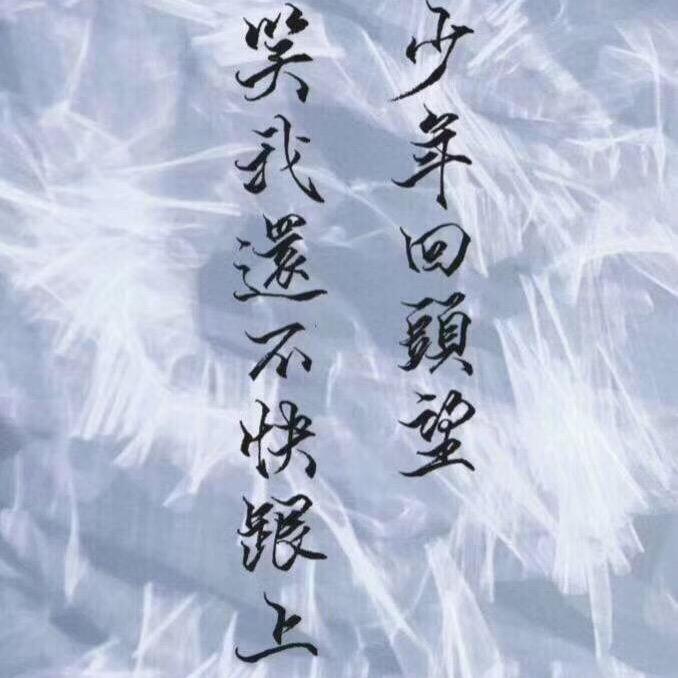 少年回頭望
笑我還不快跟上